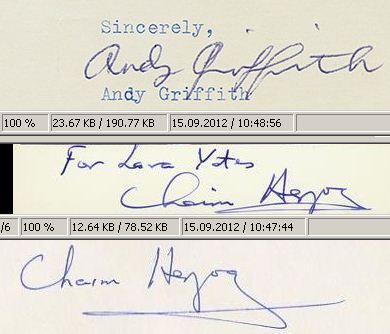 Sincerely,
Andy Griffith
Andy Griffith
100 % 23.67 KB / 190.77 KB 15.09.2012 / 10:48:56
For Lara Yates
Chaim Herzog
/6 100 % 12.64 KB / 78.52 KB 15.09.2012 / 10:47:44
Chaim Herzog